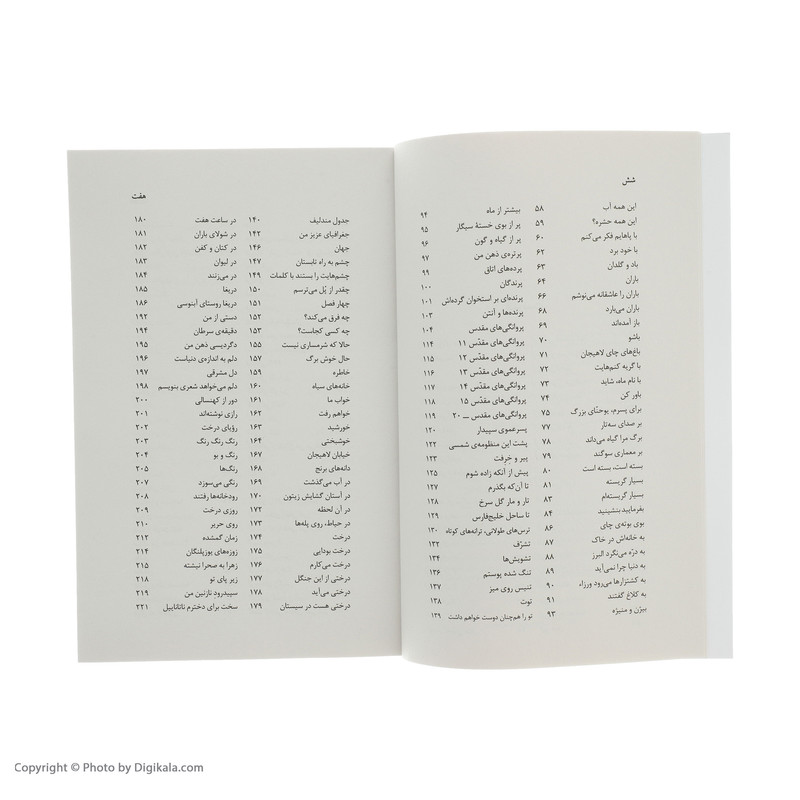 شش
این همه آب ۵۸
این همه حشره؟ ۵۹
با پاهایم فکر می‌کنم ۶۰
با خود برد ۶۲
باد و گلدان ۶۳
باران ۶۴
باران را عاشقانه می‌نوشم ۶۶
باران می‌بارد ۶۸
باز آمده‌اند ۶۹
باشو ۷۰
باغ‌های چای لاهیجان ۷۱
با گربه کنم‌هایت ۷۲
با نام ماه، شاید ۷۳
باور کن ۷۴
برای پسرم، یوحنّای بزرگ ۷۵
بر صدای سه‌تار ۷۷
برگ مرا گیاه می‌داند ۷۸
بر معماری سوگند ۷۹
بسته است، بسته است ۸۰
بسیار گریسته ۸۱
بسیار گریسته‌ام ۸۳
بفرمایید بنشینید ۸۴
بوی بوته‌ی چای ۸۶
به خانه‌اش در خاک ۸۷
به درّه می‌نگرد البرز ۸۸
به دنیا چرا نمی‌آید ۸۹
به کشتزارها می‌رود ورزاء ۹۰
به کلاغ گفتند ۹۱
بیژن و منیژه ۹۳
بیشتر از ماه ۹۴
پر از بوی خستهٔ سیگار ۹۵
پر از گیاه و گون ۹۶
پرتره‌ی ذهن من ۹۷
پرده‌های اتاق ۹۹
پرندگان ۱۰۰
پرنده‌ای بر استخوان گرده‌اش ۱۰۱
پرنده‌ها و آنتن ۱۰۳
پروانگی‌های مقدس ۱۰۴
پروانگی‌های مقدّس ۱۱ ۱۱۴
پروانگی‌های مقدّس ۱۲ ۱۱۵
پروانگی‌های مقدّس ۱۳ ۱۱۶
پروانگی‌های مقدّس ۱۴ ۱۱۷
پروانگی‌های مقدس ۱۵ ۱۱۸
پروانگی‌های مقدس ــ ۲۰ ۱۱۹
پسرعموی سپیدار ۱۲۰
پشت این منظومه‌ی شمسی ۱۲۲
پیر و خِرِفت ۱۲۳
پیش از آنکه زاده شوم ۱۲۵
تا آن‌که بگذرم ۱۲۷
تار و مار گل سرخ ۱۲۸
تا ساحل خلیج‌فارس ۱۲۹
ترس‌های طولانی، ترانه‌های کوتاه ۱۳۰
تشرّف ۱۳۲
تشویش‌ها ۱۳۴
تنگ شده پوستم ۱۳۶
تنیس روی میز ۱۳۷
توت ۱۳۸
تو را هم‌چنان دوست خواهم داشت ۱۳۹
هفت
جدول مندلیف ۱۴۰
جغرافیای عزیز من ۱۴۲
جهان ۱۴۶
چشم به راه تابستان ۱۴۷
چشم‌هایت را بستند با کلمات ۱۴۹
چقدر از پُل می‌ترسم ۱۵۰
چهار فصل ۱۵۱
چه فرق می‌کند؟ ۱۵۲
چه کسی کجاست؟ ۱۵۳
حالا که شرمساری نیست ۱۵۵
حال خوش برگ ۱۵۷
خاطره ۱۵۹
خانه‌های سیاه ۱۶۰
خواب ما ۱۶۱
خواهم رفت ۱۶۲
خورشید ۱۶۳
خوشبختی ۱۶۴
خیابان لاهیجان ۱۶۷
دانه‌های برنج ۱۶۸
در آب می‌گذشت ۱۶۹
در آستان گشایش زیتون ۱۷۰
در آن لحظه ۱۷۲
در حیاط، روی پله‌ها ۱۷۳
درخت ۱۷۴
درخت بودایی ۱۷۵
درخت می‌کارم ۱۷۶
درختی از این جنگل ۱۷۷
درختی می‌آید ۱۷۸
درختی هست در سیستان ۱۷۹
در ساعت هفت ۱۸۰
در شولای باران ۱۸۱
در کتان و کفن ۱۸۲
در لیوان ۱۸۳
در می‌زنند ۱۸۴
دریغا ۱۸۵
دریغا روستای آبنوسی ۱۸۶
دستی از من ۱۹۲
دقیقه‌ی سرطان ۱۹۴
دگردیسی ذهن من ۱۹۵
دلم به اندازه‌ی دنیاست ۱۹۶
دل مشرقی ۱۹۷
دلم می‌خواهد شعری بنویسم ۱۹۸
دور از کهنسالی ۲۰۰
رازی نوشته‌اند ۲۰۱
رؤیای درخت ۲۰۲
رنگ رنگ رنگ ۲۰۳
رنگ و بو ۲۰۴
رنگ‌ها ۲۰۵
رنگی می‌سوزد ۲۰۷
رودخانه‌ها رفتند ۲۰۸
روزی درخت ۲۰۹
روی حریر ۲۱۰
زمان گمشده ۲۱۲
زوزه‌های یوزپلنگان ۲۱۴
زهرا به صحرا نپشته ۲۱۵
زیر پای تو ۲۱۸
سپیدرود نازنین من ۲۱۹
سخت برای دخترم ناتاناییل ۲۲۱
Copyright © Photo by Digikala.com